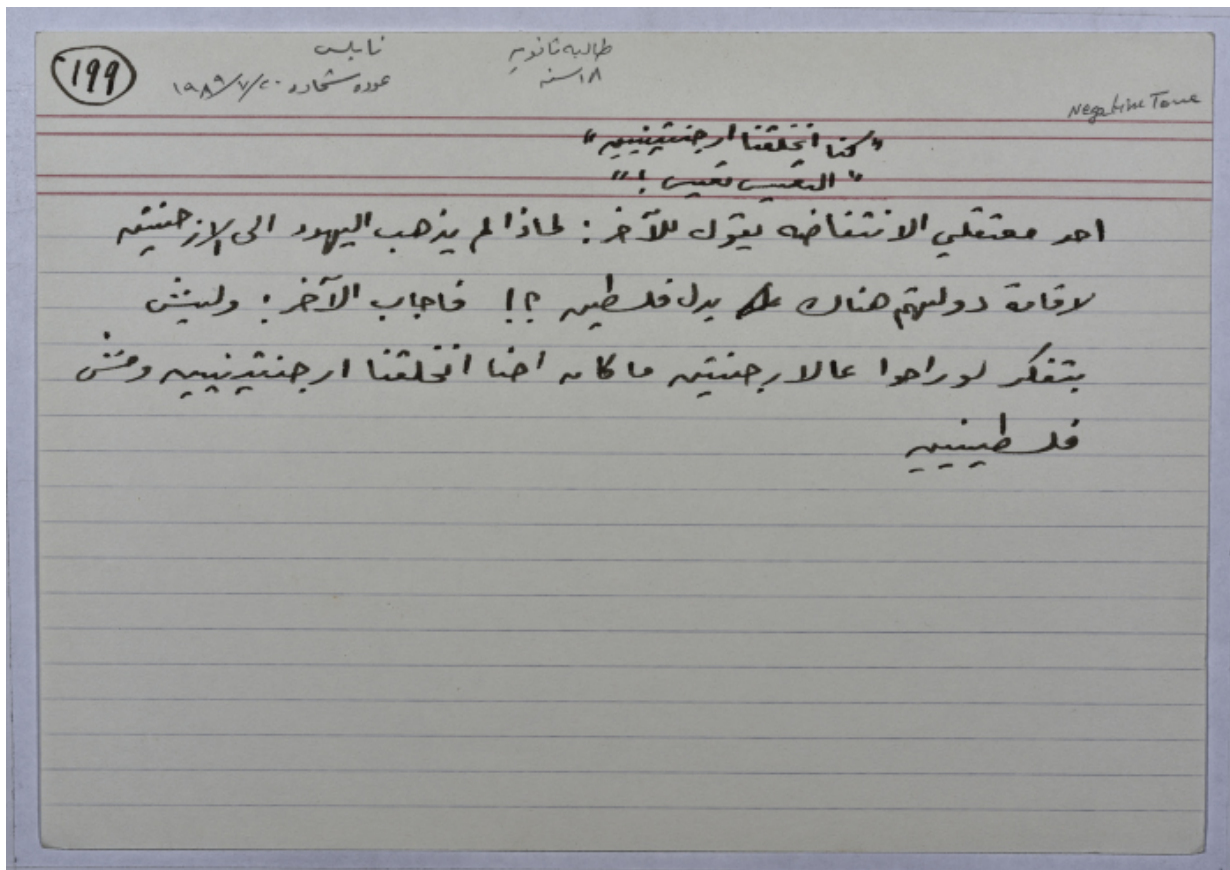 199
نابلس
عوده شحاده ٢٠/٧/١٩٨٩
طالبه ثانويه
١٨ سنه
Negative Tone
"كنا انخلقنا ارجنتينيين"
"التعيس تعيس!"
احد معتقلي الانتفاضه يقول للآخر: لماذا لم يذهب اليهود الى الارجنتين
لاقامة دولتهم هناك بدل فلسطين ؟! فاجاب الآخر: وليش
بتفكر لو راحوا عالارجنتين ما كان احنا انخلقنا ارجنتينيين ومش
فلسطينيين